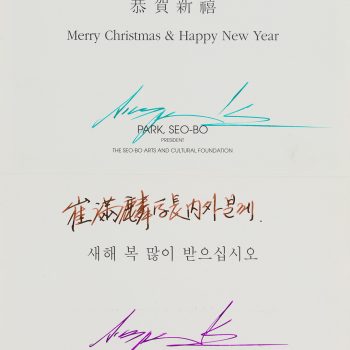 恭賀新禧
Merry Christmas & Happy New Year
PARK, SEO-BO
PRESIDENT
THE SEO-BO ARTS AND CULTURAL FOUNDATION
崔滿麟 長內外분께.
새해 복 많이 받으십시오